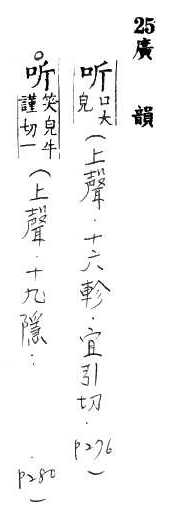 25廣韻
听口大皃(上聲.十六軫.宜引切.P276)
听笑皃牛謹切一(上聲.十九隱:.P280)